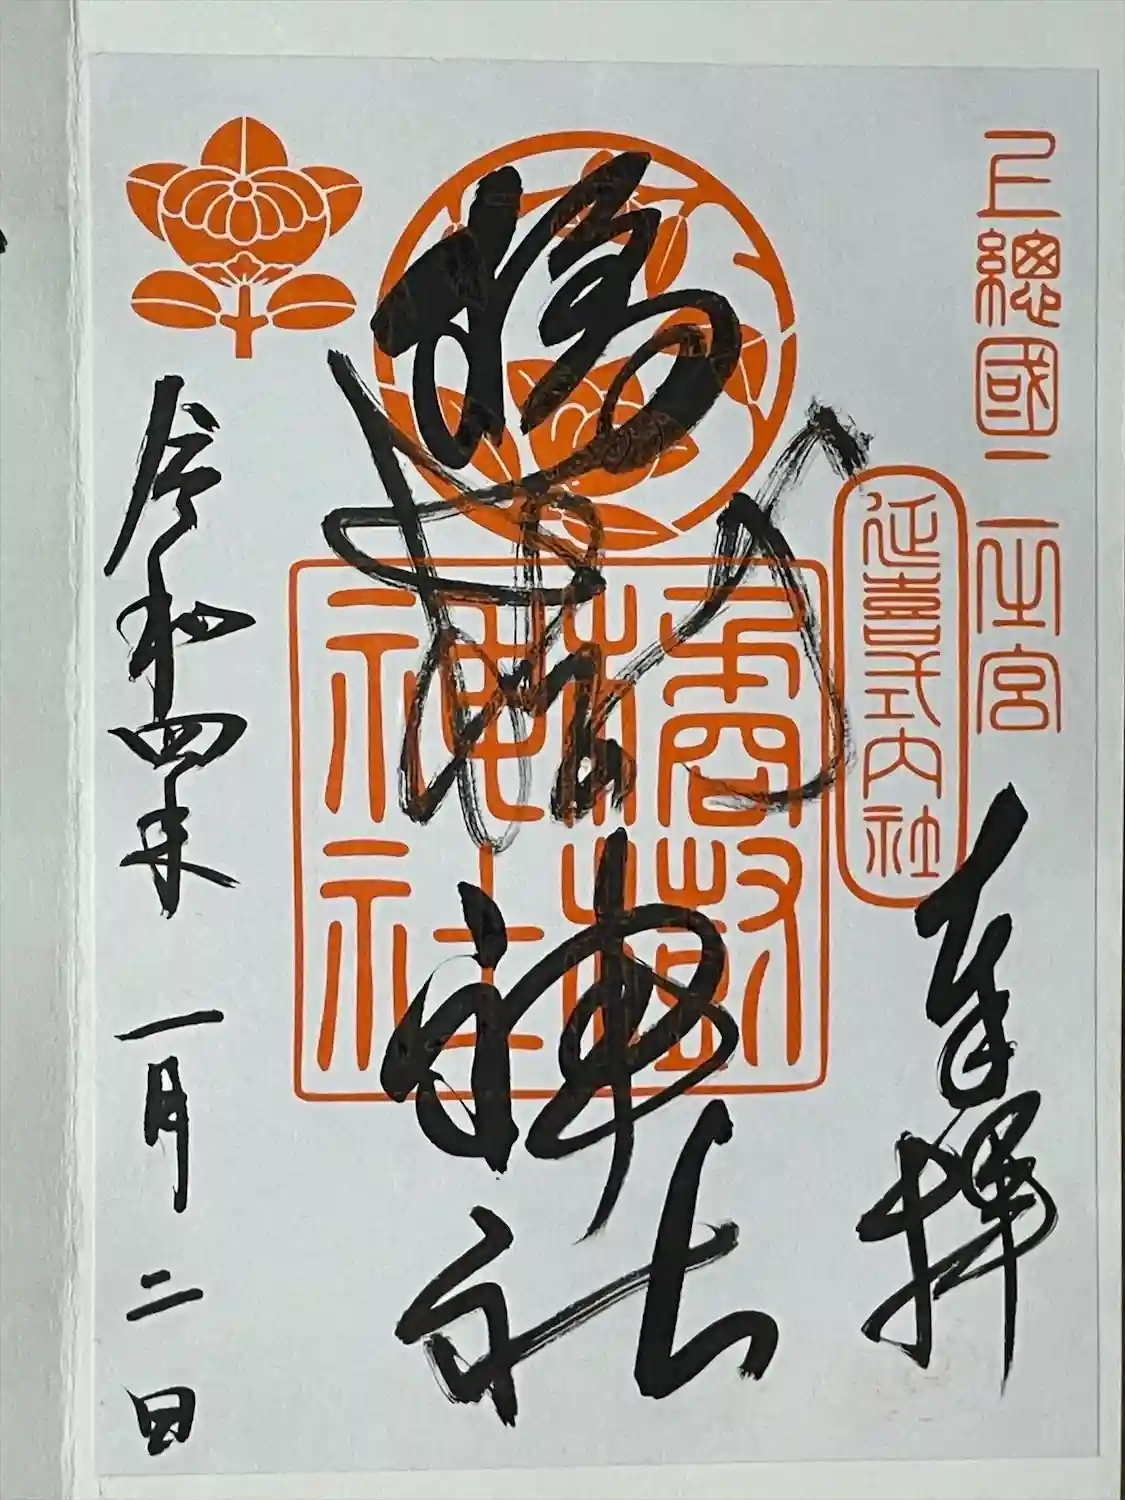 上總國二之宮
奉拝
延喜式内社
橘樹神社
橘樹
神社
令和四年 一月 二日